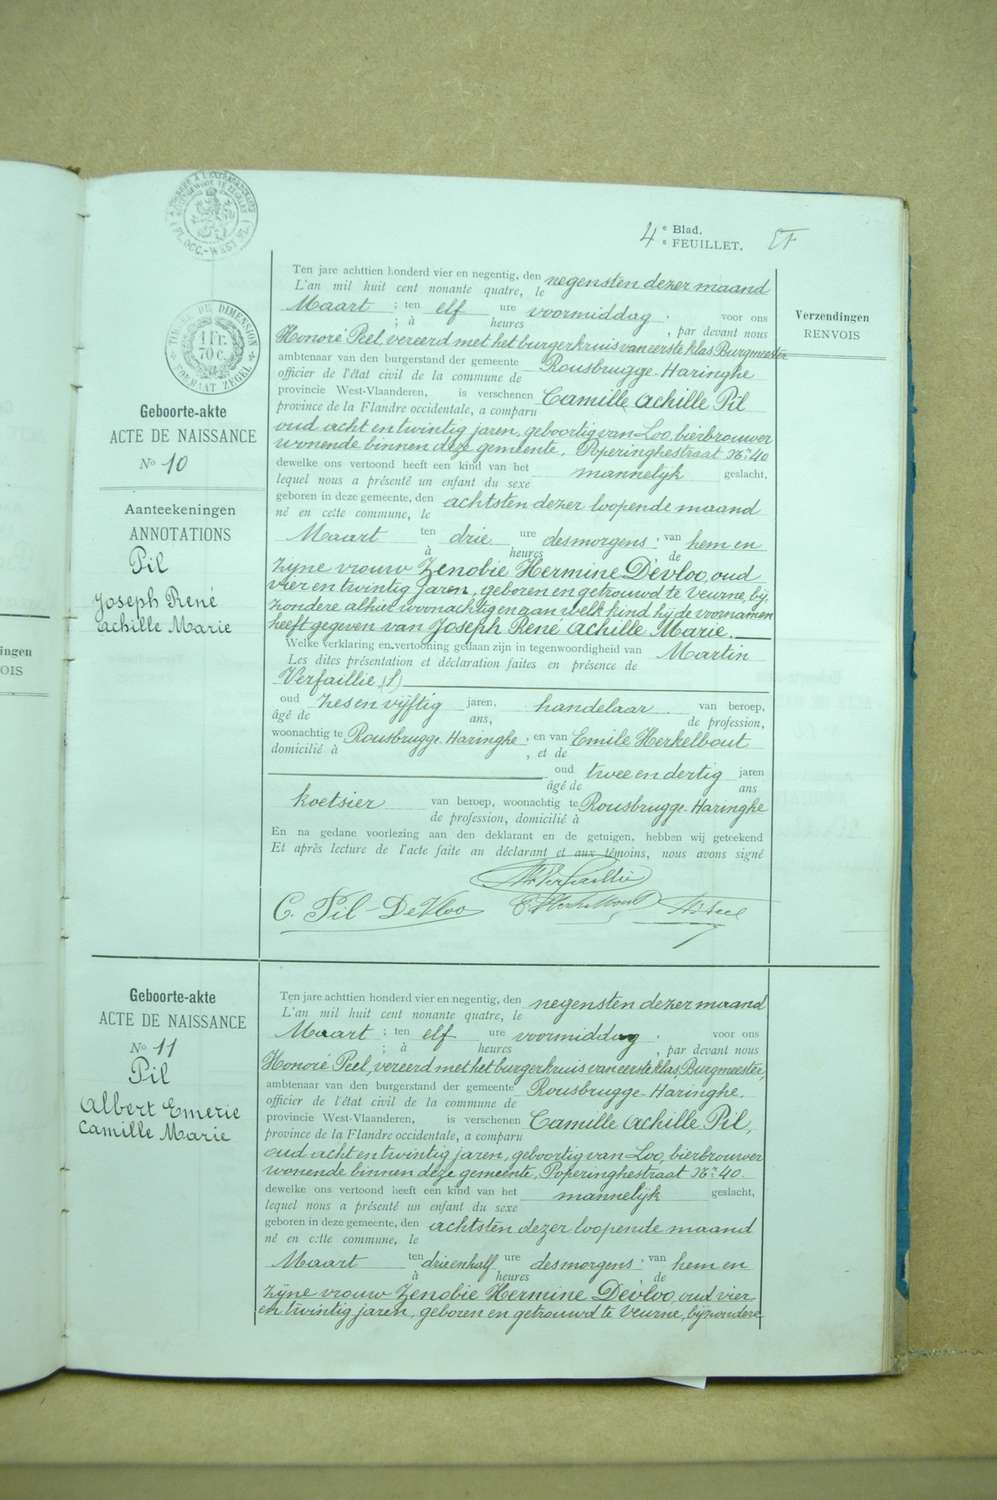 4e Blad.
e FEUILLET.
TIMBRE DE DIMENSION
1 Fr.
70 c.
FORMAAT ZEGEL
Verzendingen
RENVOIS
Geboorte-akte
ACTE DE NAISSANCE
No 10
Aanteekeningen
ANNOTATIONS
Pil
Joseph René
Achille Marie
Ten jare achttien honderd vier en negentig, den negensten dezer maand
L'an mil huit cent nonante quatre, le
Maart ; ten elf ure voormiddag : voor ons
; à heures , par devant nous
Honoré Peel, vereerd met het burgerkruis van eerste klas Burgmeester
ambtenaar van den burgerstand der gemeente Rousbrugge-Haringhe
officier de l'état civil de la commune de
provincie West-Vlaanderen, is verschenen Camille Achille Pil
province de la Flandre occidentale, a comparu
oud acht en twintig jaren, geboortig van Loo, bierbrouwer
wonende binnen deze gemeente, Poperinghestraat No 40
dewelke ons vertoond heeft een kind van het mannelijk geslacht,
lequel nous a présenté un enfant du sexe
geboren in deze gemeente, den achtsten dezer loopende maand
né en cette commune, le
Maart ten drie ure desmorgens : van hem en
à heures de
zijne vrouw Zenobie Hermine Dévloo, oud
vier en twintig jaren, geboren en getrouwd te Veurne, bij
zondere alhier woonachtig en aan welk kind hij de voornamen
heeft gegeven van Joseph René Achille Marie.
Welke verklaring en vertooning gedaan zijn in tegenwoordigheid van Martin
Les dites présentation et déclaration faites en présence de
Verfaillie (S)
oud zes en vijftig jaren, handelaar van beroep,
âgé de ans, de profession,
woonachtig te Rousbrugge-Haringhe, en van Emile Herkelbout
domicilié à , et de
oud twee en dertig jaren
âgé de ans
koetsier van beroep, woonachtig te Rousbrugge-Haringhe
de profession, domicilié à
En na gedane voorlezing aan den deklarant en de getuigen, hebben wij geteekend
Et après lecture de l'acte faite au déclarant et aux témoins, nous avons signé
Verfaillie
C. Pil-DeVloo
Geboorte-akte
ACTE DE NAISSANCE
No 11
Pil
Albert Emerie
Camille Marie
Ten jare achttien honderd vier en negentig, den negensten dezer maand
L'an mil huit cent nonante quatre, le
Maart ; ten elf ure voormiddag : voor ons
; à heures , par devant nous
Honoré Peel, vereerd met het burgerkruis van eerste klas Burgmeester,
ambtenaar van den burgerstand der gemeente Rousbrugge-Haringhe.
officier de l'état civil de la commune de
provincie West-Vlaanderen, is verschenen Camille Achille Pil,
province de la Flandre occidentale, a comparu
oud acht en twintig jaren, geboortig van Loo, bierbrouwer
wonende binnen deze gemeente, Poperinghestraat No 40
dewelke ons vertoond heeft een kind van het mannelijk geslacht,
lequel nous a présenté un enfant du sexe
geboren in deze gemeente, den achtsten dezer loopende maand
né en cette commune, le
Maart ten drie en half ure desmorgens : van hem en
à heures de
zijne vrouw Zenobie Hermine Dévloo, oud vier
en twintig jaren, geboren en getrouwd te Veurne, bijzondere